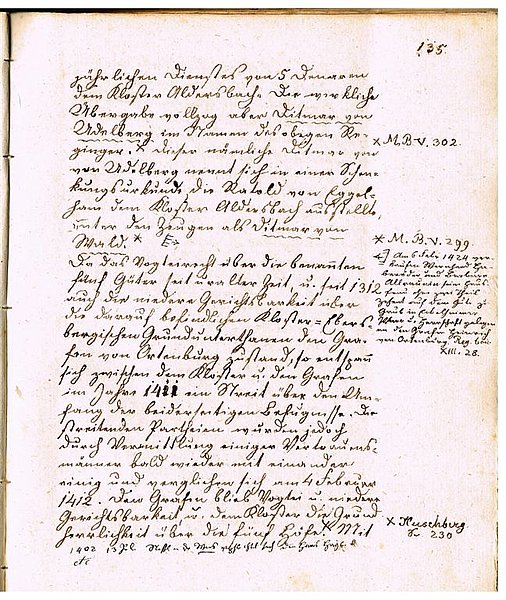 135
jährlichen Dienstes von 5 Denaren
dem Kloster Aldersbach. Die wirkliche
Übergabe vollzog aber Ditmar von
Adelberg im Namen des obigen Re-
ginger. × Dieser nämliche Ditmar von
× M.B.V. 302.
von Adelberg nennt sich in einer Schen-
kungsurkunde, die Ratold von Eggel-
ham dem Kloster Aldersbach ausstellte,
unter den Zeugen als Ditmar von
Wald. ×
× M.B.V. 299.
Da das Vogteirecht über die benannten
fünf Güter seit uralter Zeit, u. seit 1312
auch die niedere Gerichtsbarkeit über
die darauf befindlichen Kloster = Ebers-
bergischen Grundunterthanen den Gra-
fen von Ortenburg zustand, so entspann
sich zwischen dem Kloster u. den Grafen
im Jahre 1411 ein Streit über den Um-
fang der beiderseitigen Befugnisse. Die
streitenden Partheien wurden jedoch
durch Vermittlung einiger Vertrauens-
männer bald wieder mit einander
einig und verglichen sich am 4 Februar
1412. Den Grafen blieb Vogtei u. niedere
Gerichtsbarkeit u. dem Kloster die Grund-
herrlichkeit über die fünf Höfe. × Mit
Als Jahr 1424 ver-
kaufen
Zehent auf dem Gute z.
Grub in
Pfarr u. Herrschaft gelegen
an den Grafen Heinrich
von Ortenburg. Reg. boic.
XIII. 28.
× Huschberg
S. 230
1402 13
etc